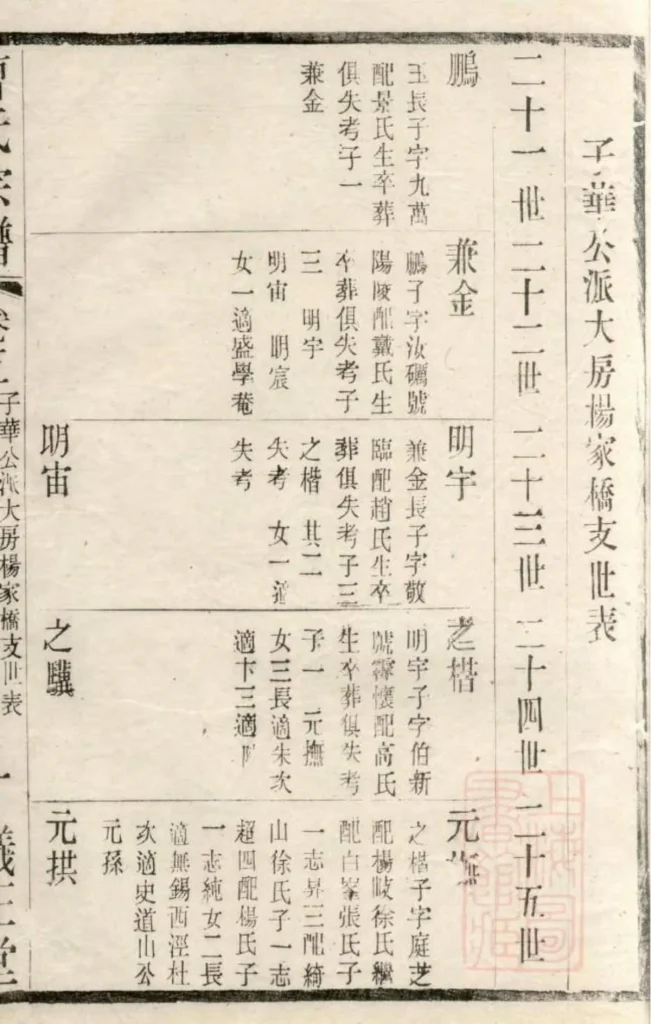 子華公派大房楊家橋支世表
二十一世
二十二世
二十三世
二十四世
二十五世
鵬
玉長子字九萬
配景氏生卒葬
俱失考子一
兼金
兼金
鵬子字汝礪號
陽陵配戴氏生
卒葬俱失考子
三 明宇
明宙 明宸
女一適盛學菴
明宇
兼金長子字敬
臨配趙氏生卒
葬俱失考子三
之楷 其二
失考 女一適
失考
明宙
之楷
明宇子字伯新
號霽懷配高氏
生卒葬俱失考
子一 元撫
女三長適朱次
適卞三適
之驥
元撫
之楷子字庭芝
配楊岐徐氏繼
配白峯張氏子
一志昇三配綺
山徐氏子一志
超四配楊氏子
一志純女二長
適無錫西涇杜
次適史道山公
元孫
元拱
氏宗譜
子華公派大房楊家橋支世表
一
義正堂